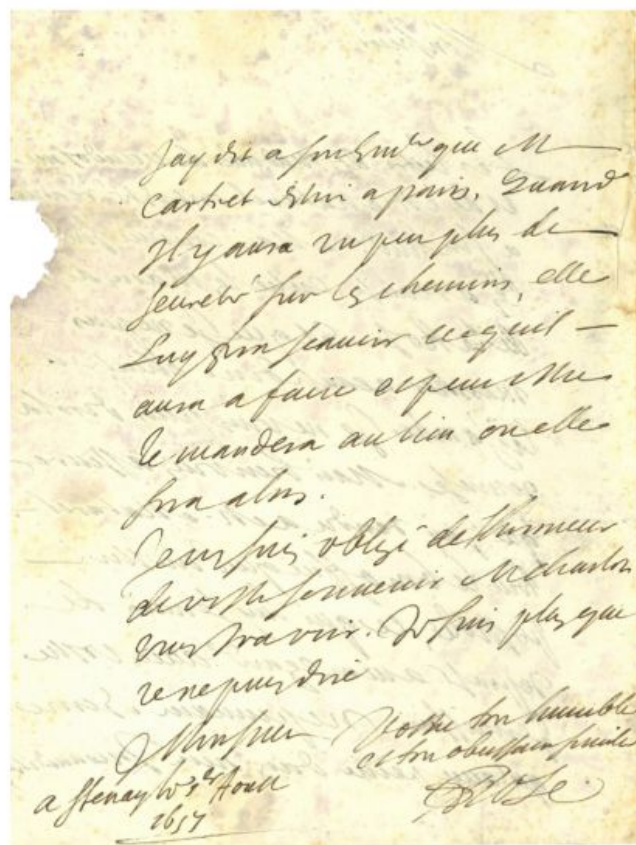 Jay dit a son Em.ce que M
cartret estoit a paris. Quand
Il y aura un peu plus de
seureté sur les chemins, elle
Luy fera scavoir ce qu'il
aura a faire et peut estre
le mandera au lieu ou elle
sera alors.
Je vous suis obligé de l'honneur
de vostre souvenir M charlos
vous
Je suis plus que
je ne puis dire
Monsieur Vostre tres humble
et tres obeissant
a Stenay le Aoust
1657 Rose